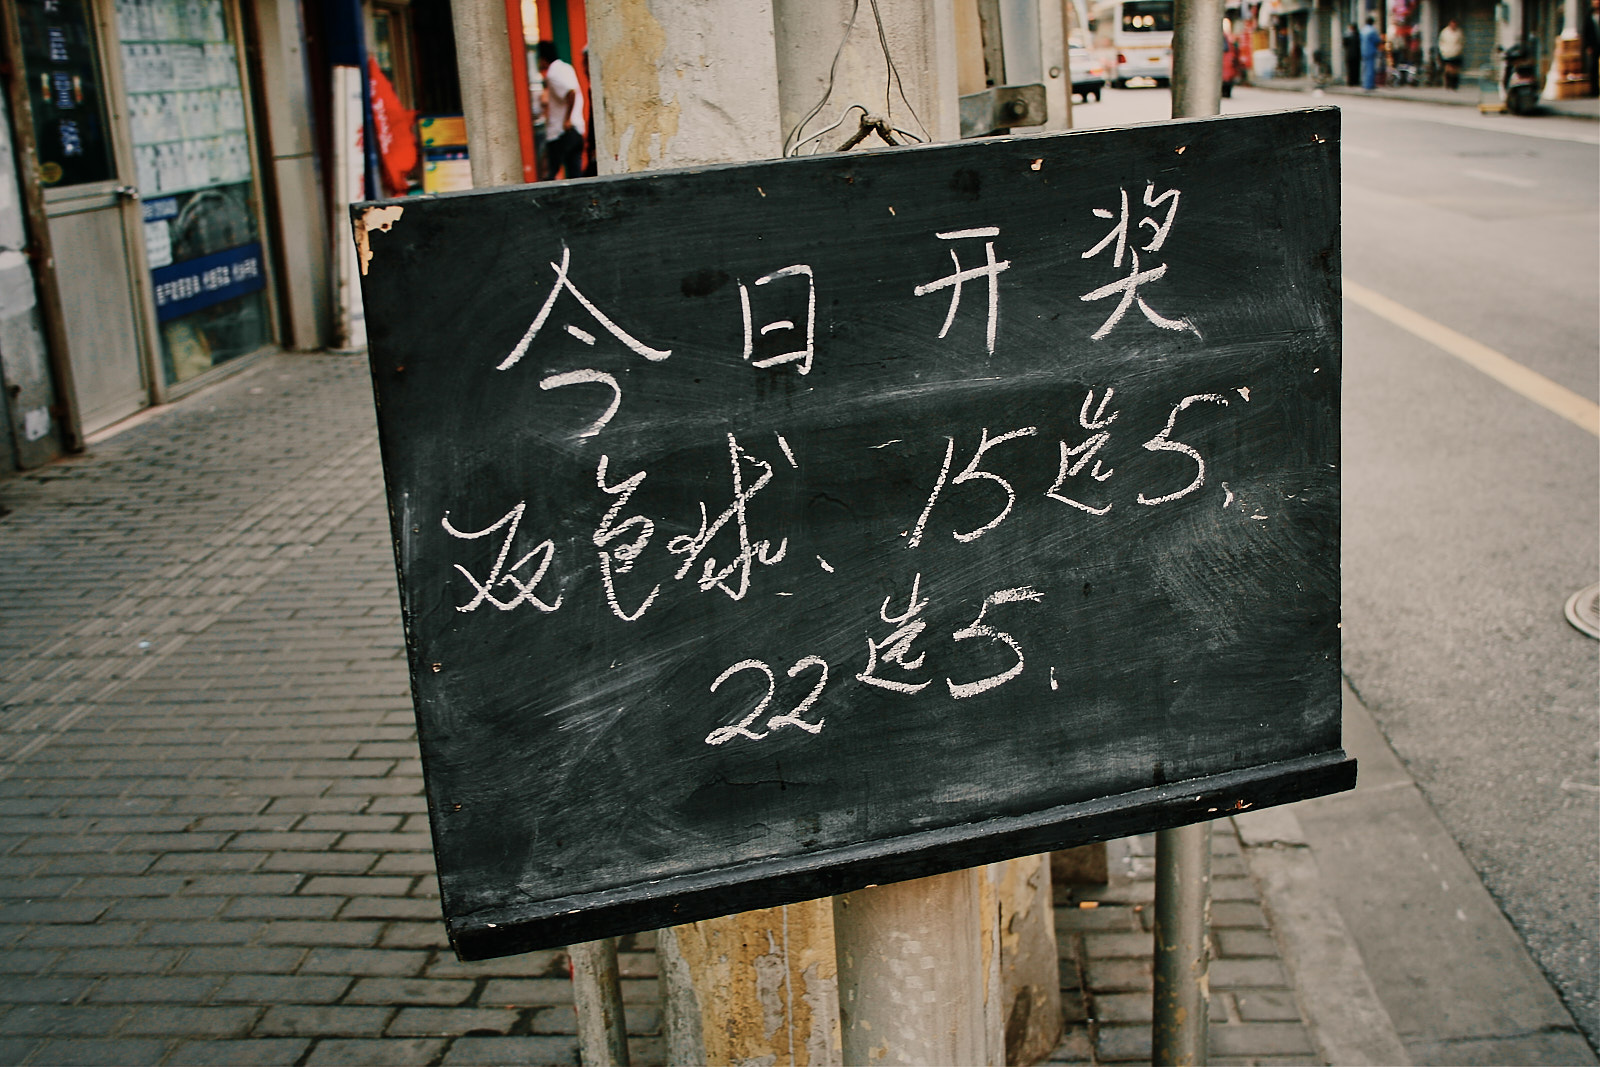 今日开奖
双色球、15选5、
22选5、